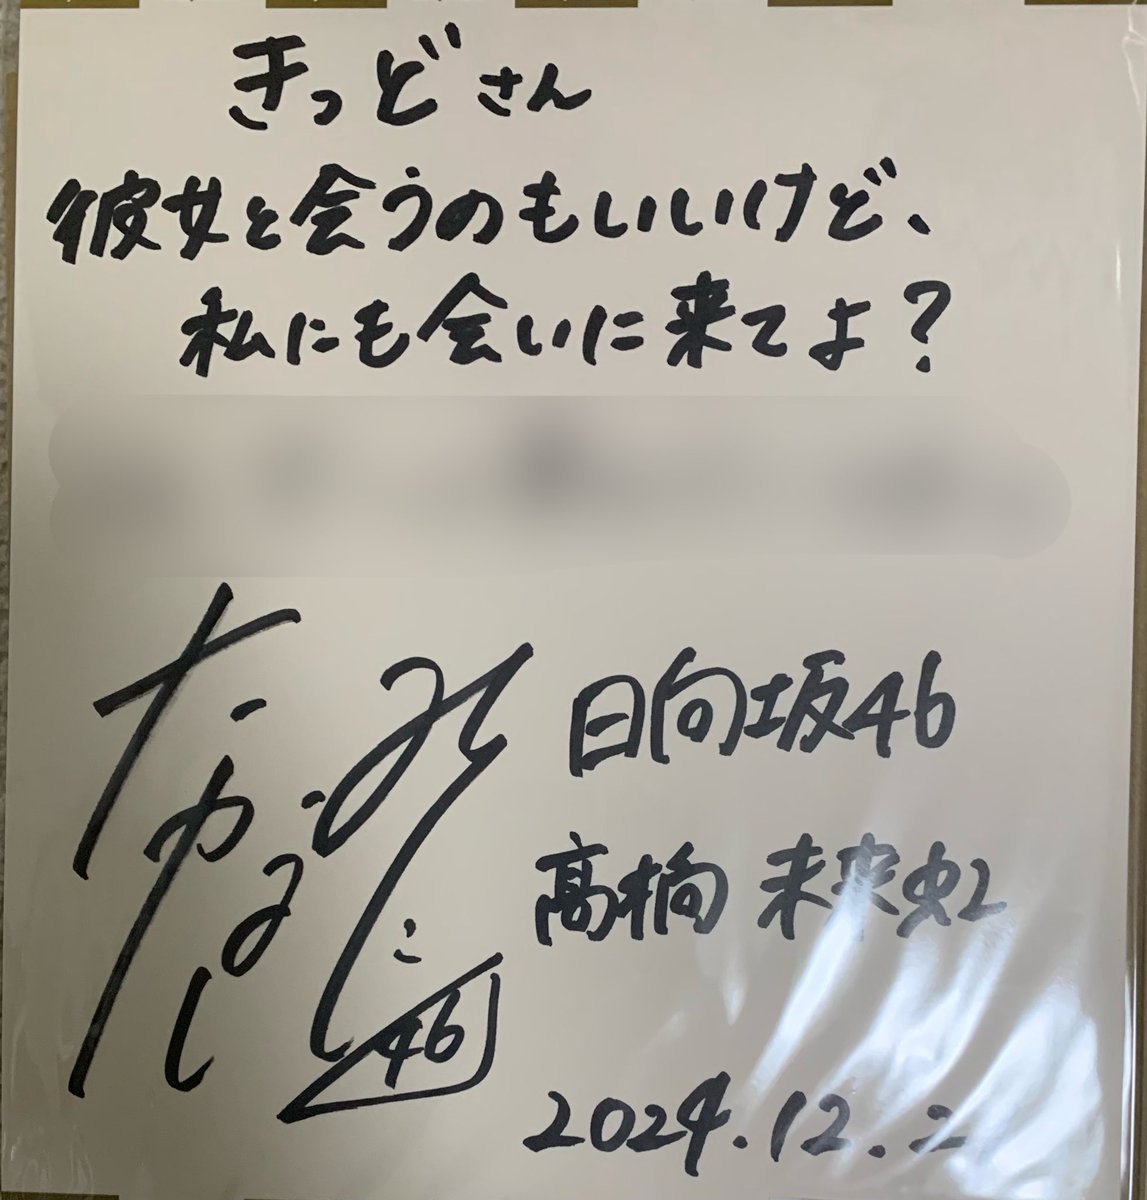 きっどさん
彼女と会うのもいいけど、
私にも会いに来てよ？
たかはし
みくに
46
日向坂46
髙橋 未来虹
2024.12.2